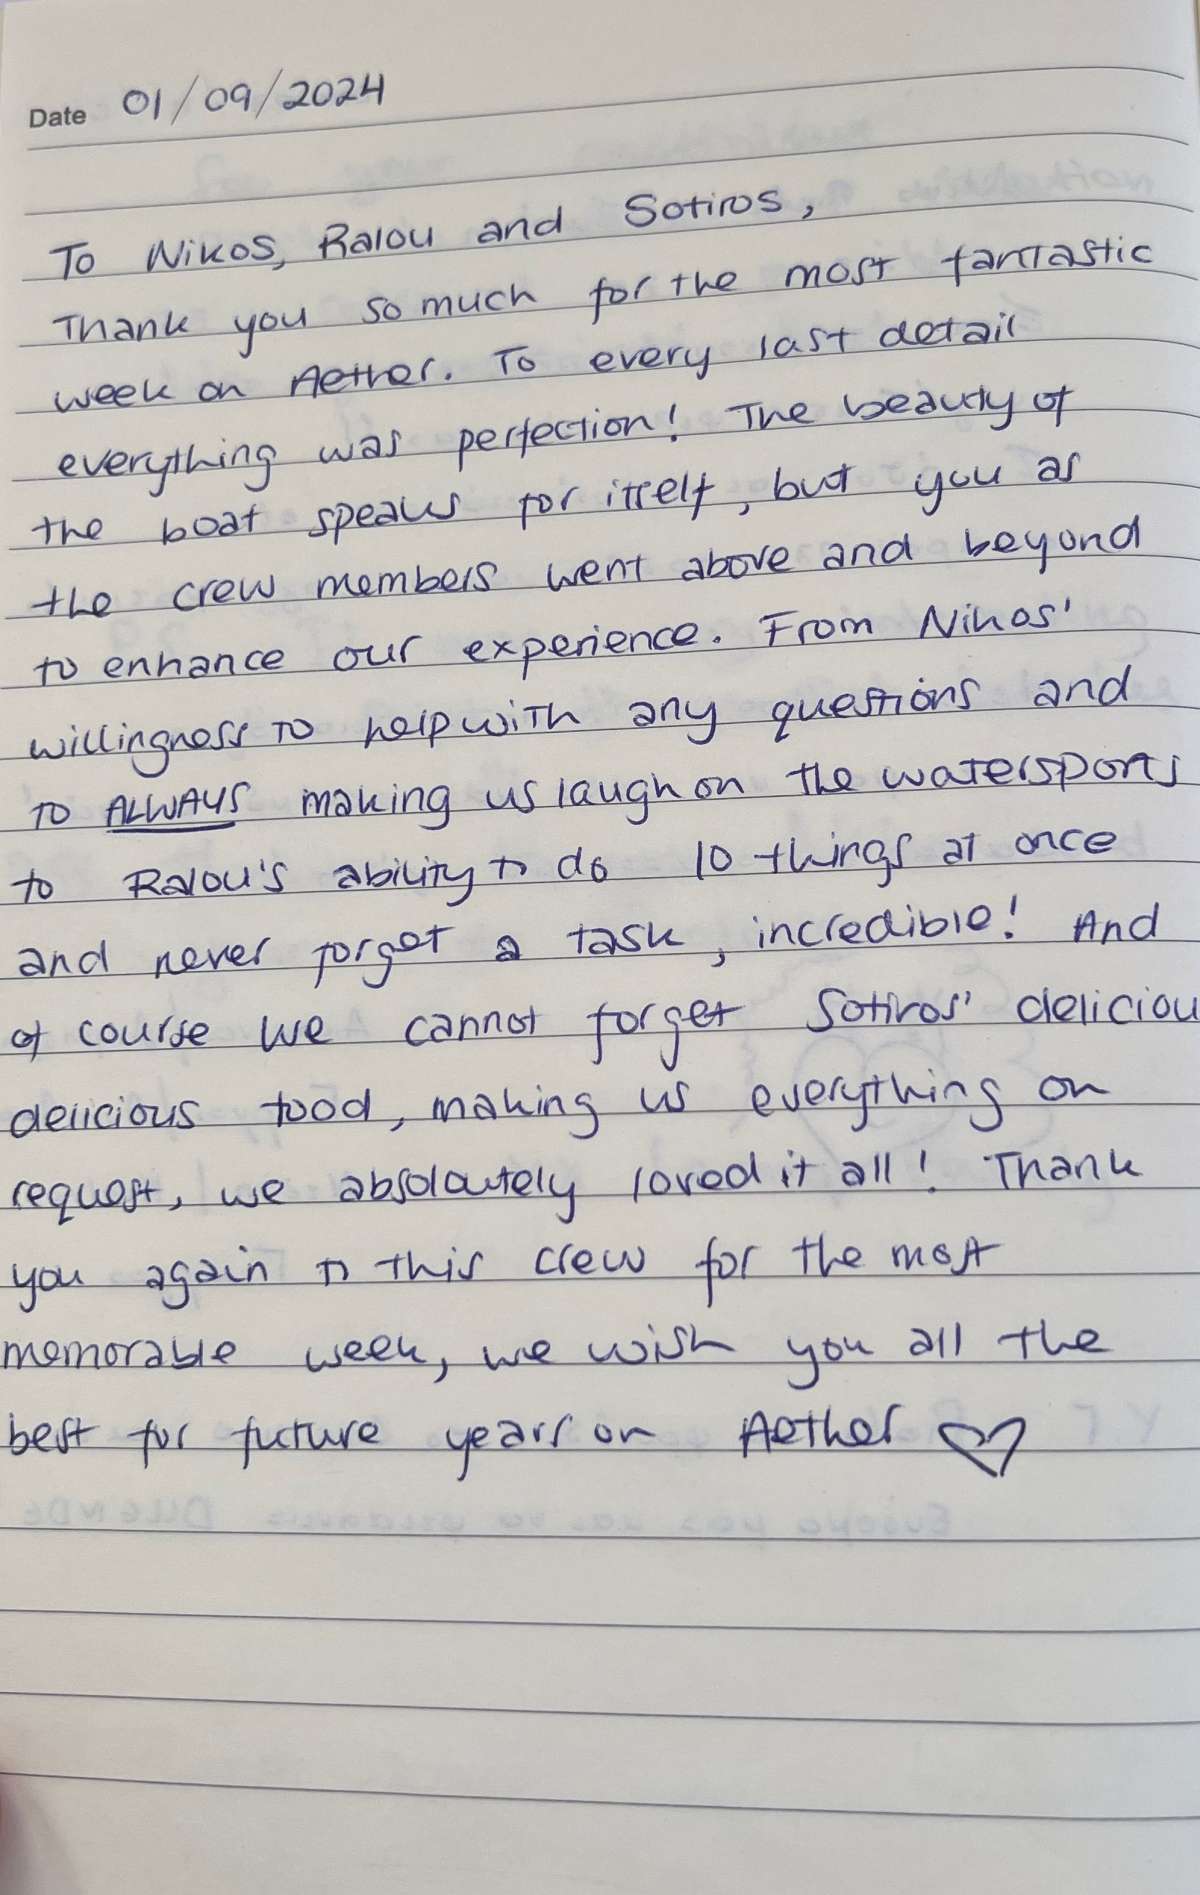 Date 01/09/2024
To Nikos, Ralou and Sotiros,
Thank you so much for the most fantastic
week on Aether. To every last detail
everything was perfection! The beauty of
the boat speaks for itself, but you as
the crew members went above and beyond
to enhance our experience. From Nikos'
willingness to help with any questions and
to ALWAYS making us laugh on the watersports
to Ralou's ability to do 10 things at once
and never forget a task, incredible! And
of course we cannot forget Sotiros' deliciou
delicious food, making us everything on
request, we absoloutely loved it all! Thank
you again to this crew for the most
memorable week, we wish you all the
best for future years on Aether ♡